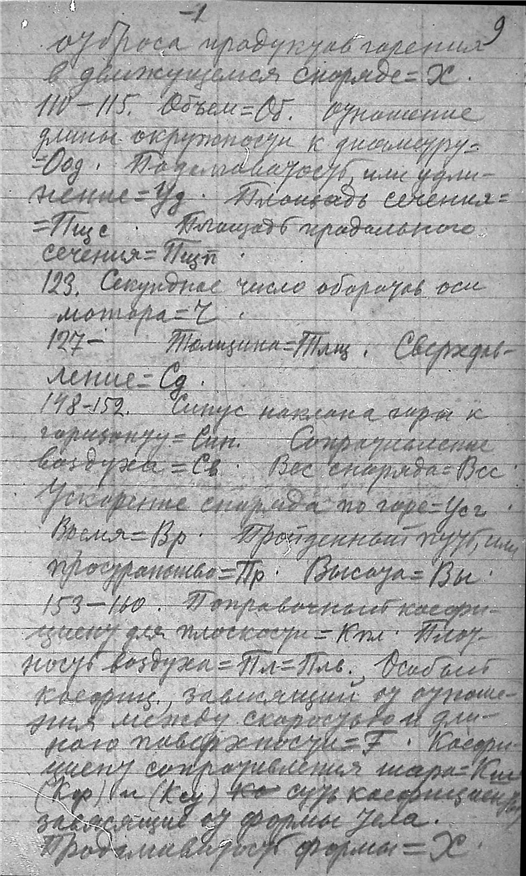 -1
9
отброса продуктов горения
в движущемся снаряде=Х.
110-115. Объем=Об. Отношение
длины окружности к диаметру=
=Оод. Продолговатость, или удли-
нение=Уд. Площадь сечения=
=Пщс. Площадь продольного
сечения=Пщп.
123. Секундное число оборотов оси
мотора=Ч.
127- Толщина=Тлщ. Сверхдав-
ление=Сд.
148-152. Синус наклона горы к
горизонту=Син. Сопротивление
воздуха=Св. Вес снаряда=Всс.
Ускорение снаряда по горе=Усг.
Время=Вр. Пройденный путь, или
пространство=Пр. Высота=Вы.
153-160. Поправочный коефи-
циент для плоскости=Кпл. Плот-
ность воздуха=Пл=Плв. Особый
коефиц., зависящий от отноше-
ния между скоростью и дли-
ною поверхности=F. Коефи-
циент сопротивления шара=Кш
(Кф) и (Ксу) суть коефициенты,
зависящие от формы тела.
Продолговатость формы=Х.